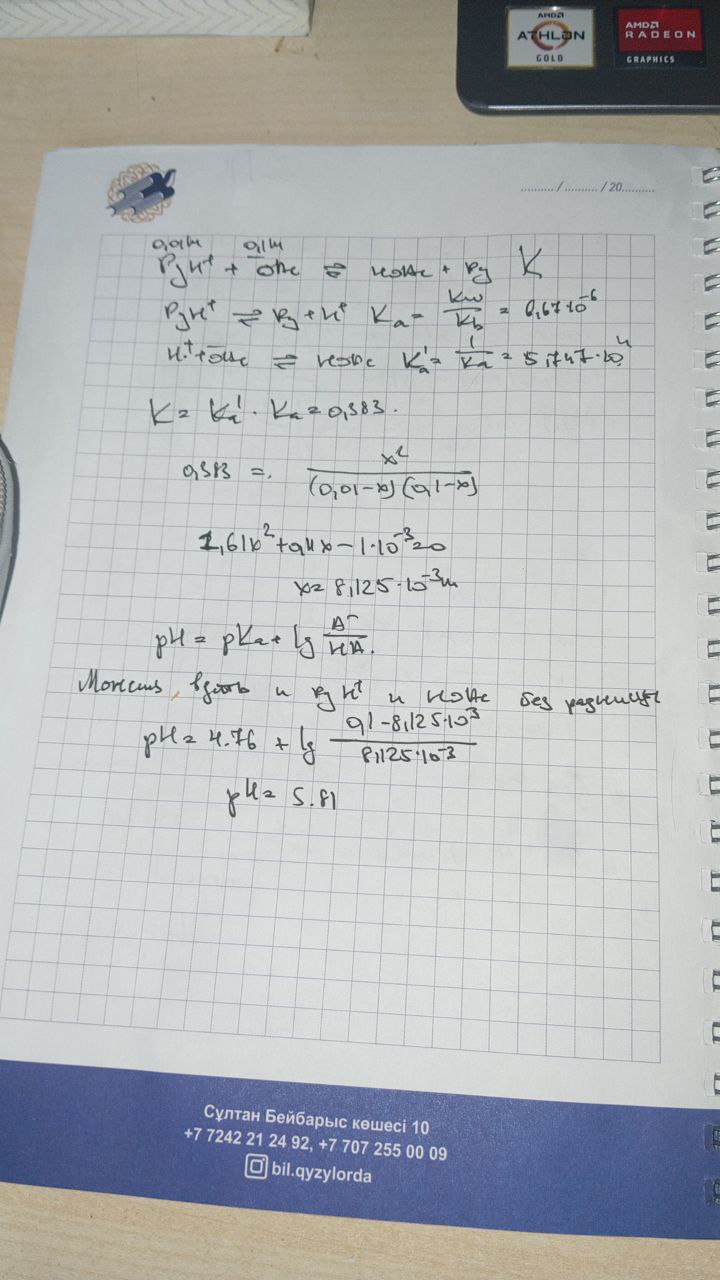 AMD
ATHLON
GOLD
AMD
RADEON
GRAPHICS
........../........../20..........
0,01M 0,1M
PyH⁺ + ⁻OAc ⇌ HOAc + Py K
PyH⁺ ⇌ Py + H⁺ Ka = Kw/Kb = 6,67·10⁻⁶
H⁺ + ⁻OAc ⇌ HOAc Ka' = 1/Ka = 5,747·10⁴
K = Ka' · Ka = 0,383.
0,383 = x²/(0,01-x)(0,1-x)
1,61x² + 0,11x - 1·10⁻³ = 0
x = 8,125·10⁻³ M
pH = pKa + lg A⁻/HA.
Можешь, и PyH⁺ и HOAc без разницы
pH = 4.76 + lg 0,1-8,125·10⁻³/8,125·10⁻³
pH = 5.81
Сұлтан Бейбарыс көшесі 10
+7 7242 21 24 92, +7 707 255 00 09
bil.qyzylorda